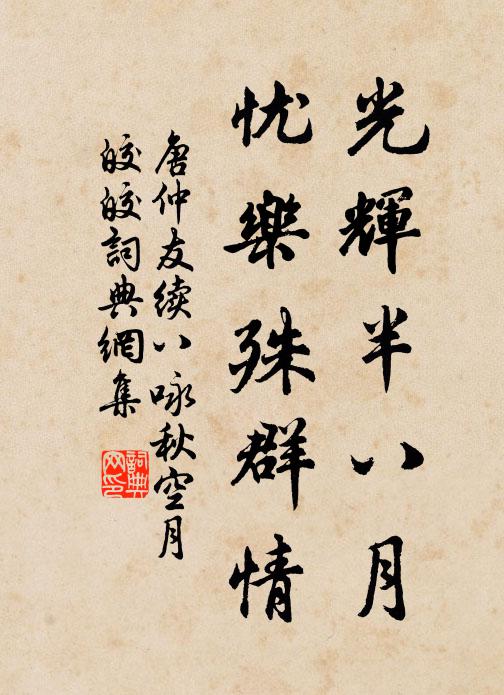 光輝半八月
忧樂殊群情
唐仲友續八咏秋空月
皎皎詞典網集
詞典网印